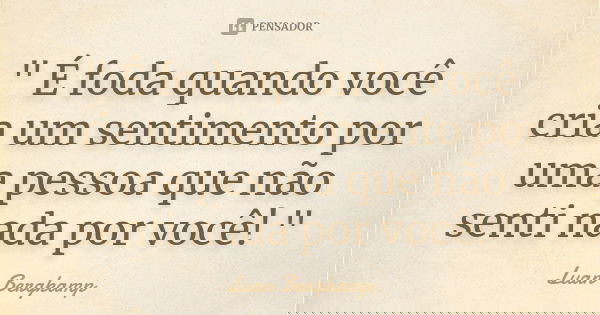 PENSADOR
" É foda quando você
cria um sentimento por
uma pessoa que não
senti nada por você! "
Luan Bergkamp.